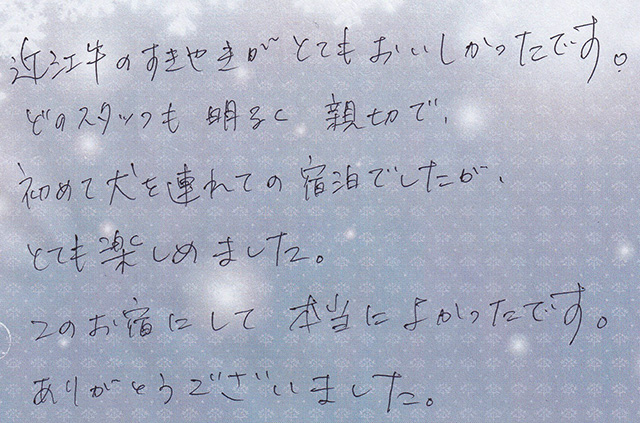 近江牛のすきやきがとてもおいしかったです。
どのスタッフも明るく親切で、
初めて犬を連れての宿泊でしたが、
とても楽しめました。
このお宿にして本当によかったです。
ありがとうございました。